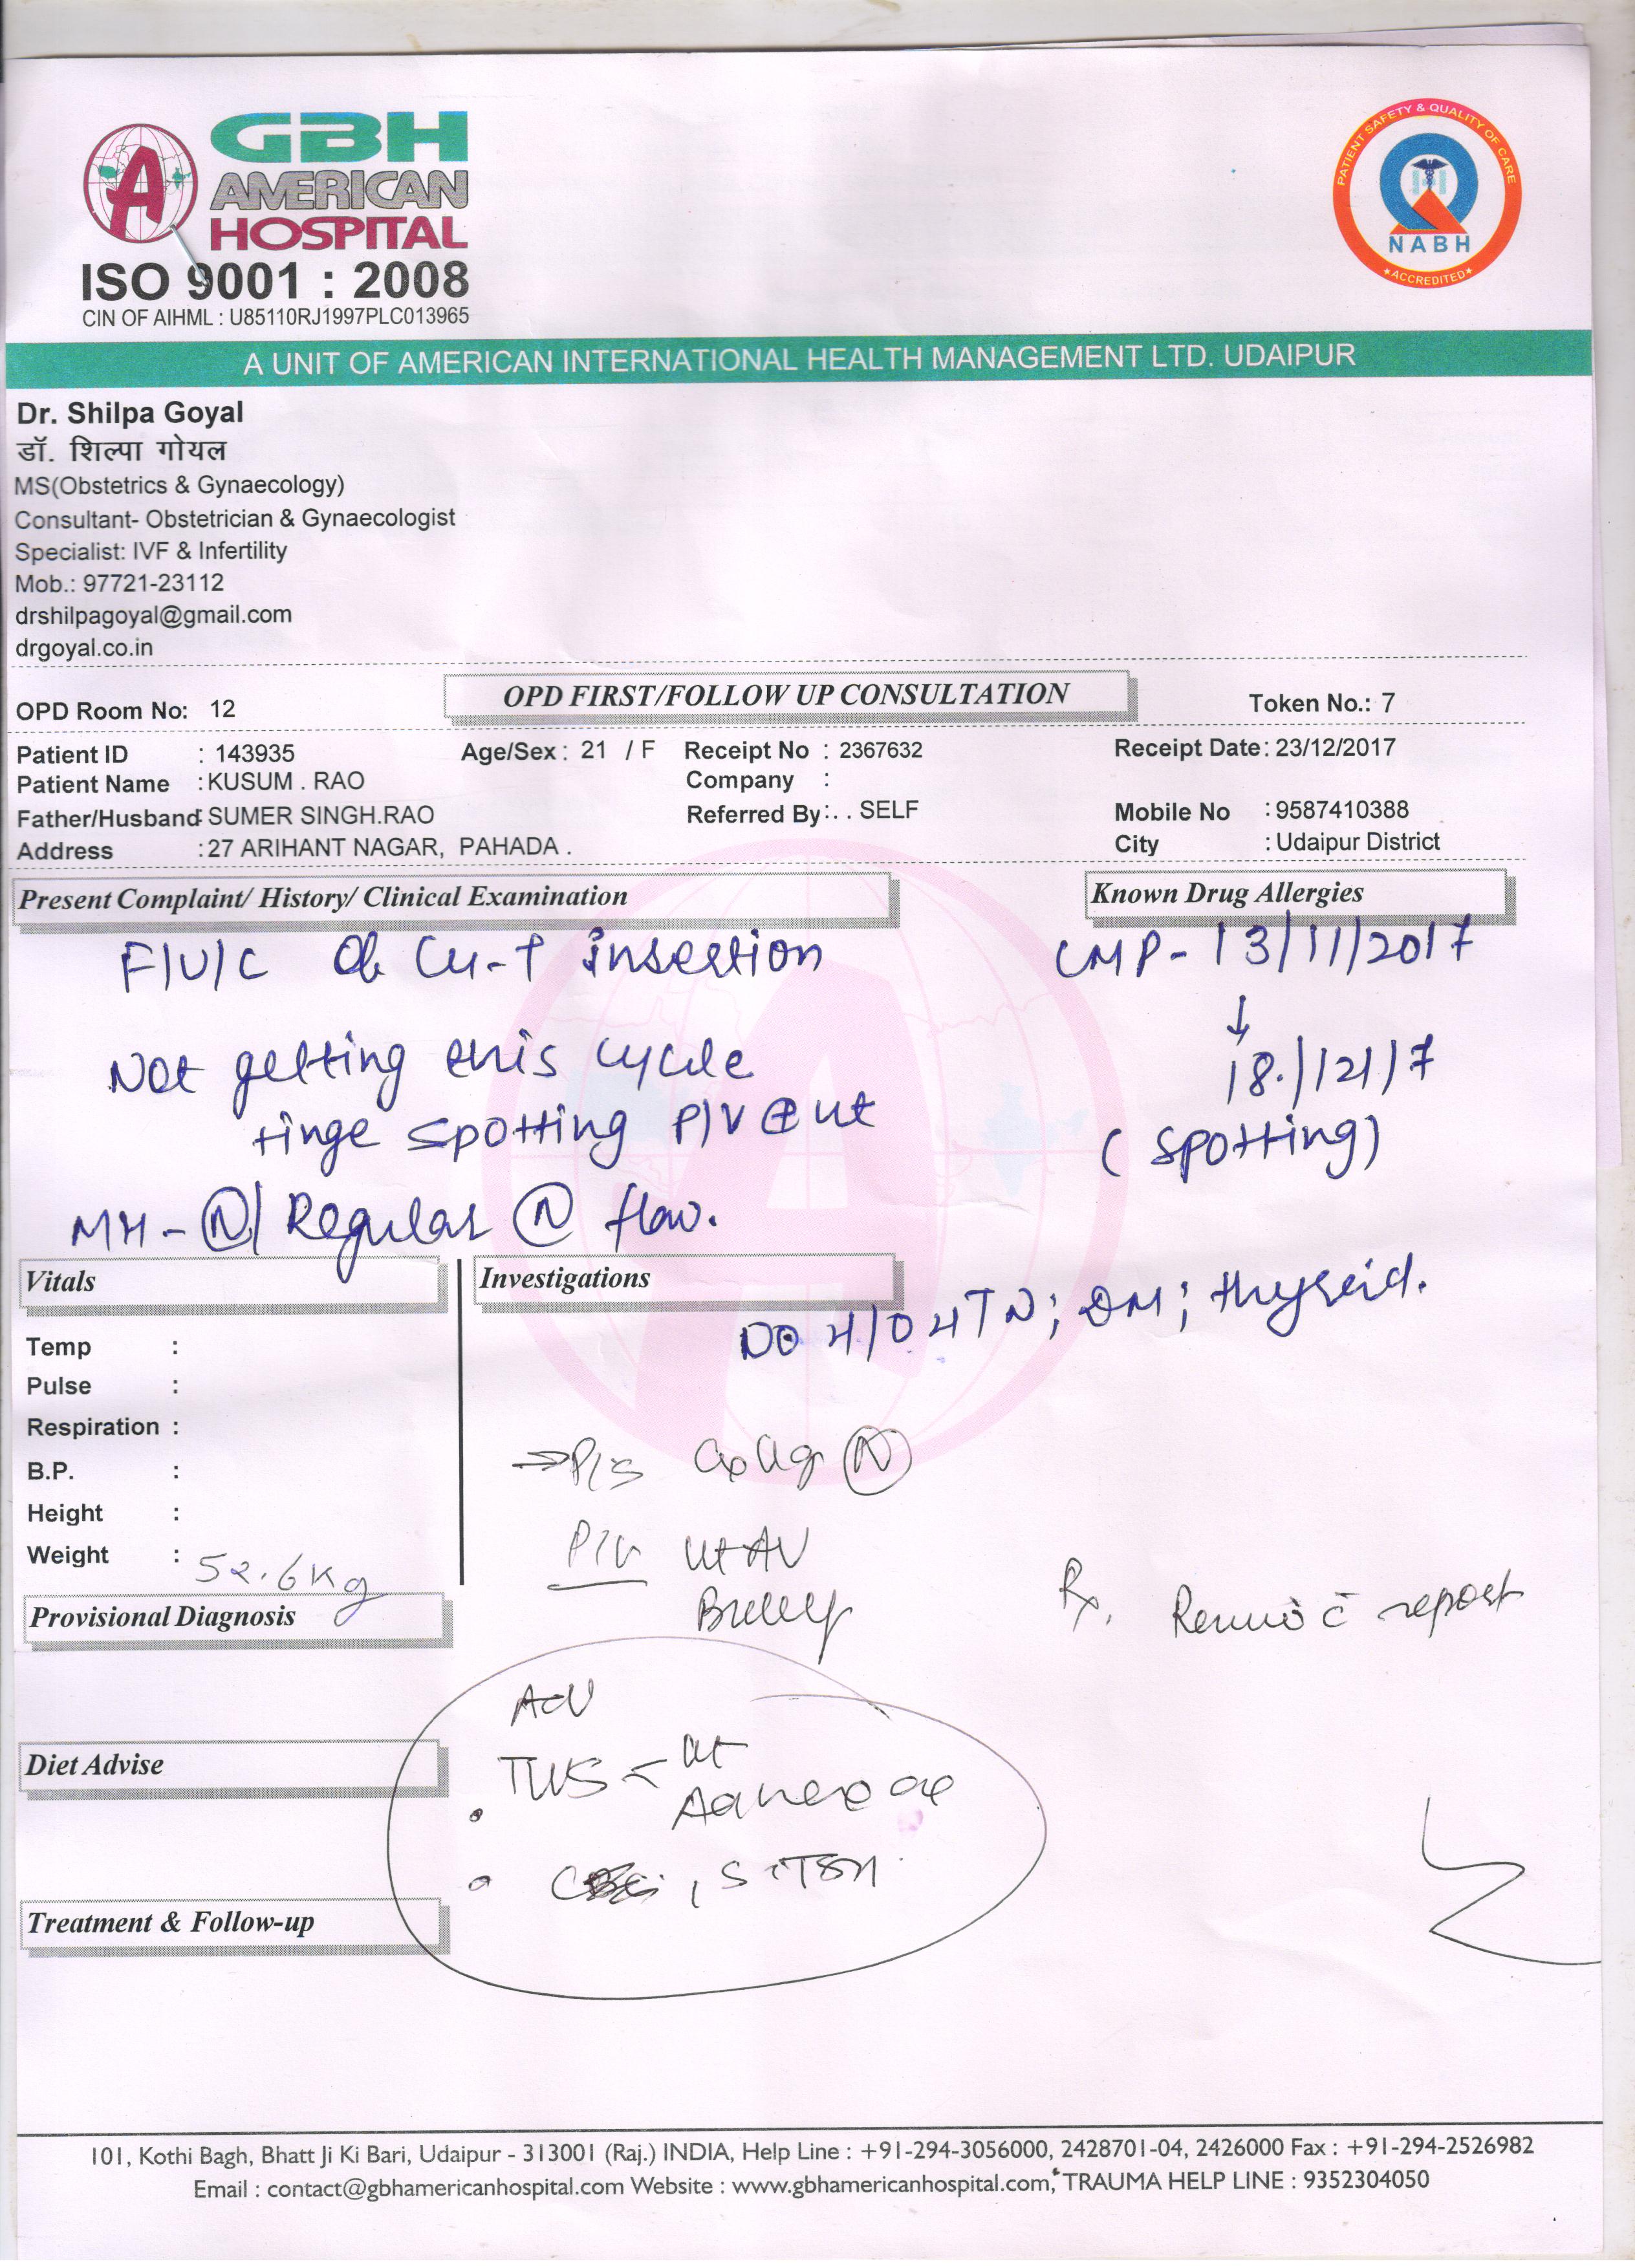 GBH
AMERICAN
HOSPITAL
ISO 9001 : 2008
CIN OF AIHML : U85110RJ1997PLC013965
PATIENT SAFETY & QUALITY OF CARE
NABH
★ACCREDITED★
A UNIT OF AMERICAN INTERNATIONAL HEALTH MANAGEMENT LTD. UDAIPUR
Dr. Shilpa Goyal
डॉ. शिल्पा गोयल
MS(Obstetrics & Gynaecology)
Consultant- Obstetrician & Gynaecologist
Specialist: IVF & Infertility
Mob.: 97721-23112
drshilpagoyal@gmail.com
drgoyal.co.in
OPD Room No: 12 OPD FIRST/FOLLOW UP CONSULTATION Token No.: 7
Patient ID : 143935 Age/Sex : 21 / F Receipt No : 2367632 Receipt Date: 23/12/2017
Patient Name :KUSUM . RAO Company :
Father/Husband: SUMER SINGH.RAO Referred By:. . SELF Mobile No :9587410388
Address :27 ARIHANT NAGAR, PAHADA . City : Udaipur District
Present Complaint/ History/ Clinical Examination Known Drug Allergies
F/U/C Of Cu-T insertion LMP- 13/11/2017
↓
Not getting this cycle 18./12/17
tinge spotting P/V (spotting)
MH - Ⓝ/ Regular Ⓝ flow.
Vitals Investigations
NO H/O HTN; DM; thyroid.
Temp :
Pulse :
Respiration :
B.P. :
Height :
Weight : 52.6Kg
⇒P/S Cx Vg Ⓝ
P/V Ut AV
Rx. Review c̄ report
Provisional Diagnosis
Adv
Diet Advise
TVS < Ut
Adnexa
, S. TSH.
Treatment & Follow-up
101, Kothi Bagh, Bhatt Ji Ki Bari, Udaipur - 313001 (Raj.) INDIA, Help Line : +91-294-3056000, 2428701-04, 2426000 Fax : +91-294-2526982
Email : contact@gbhamericanhospital.com Website : www.gbhamericanhospital.com, TRAUMA HELP LINE : 9352304050